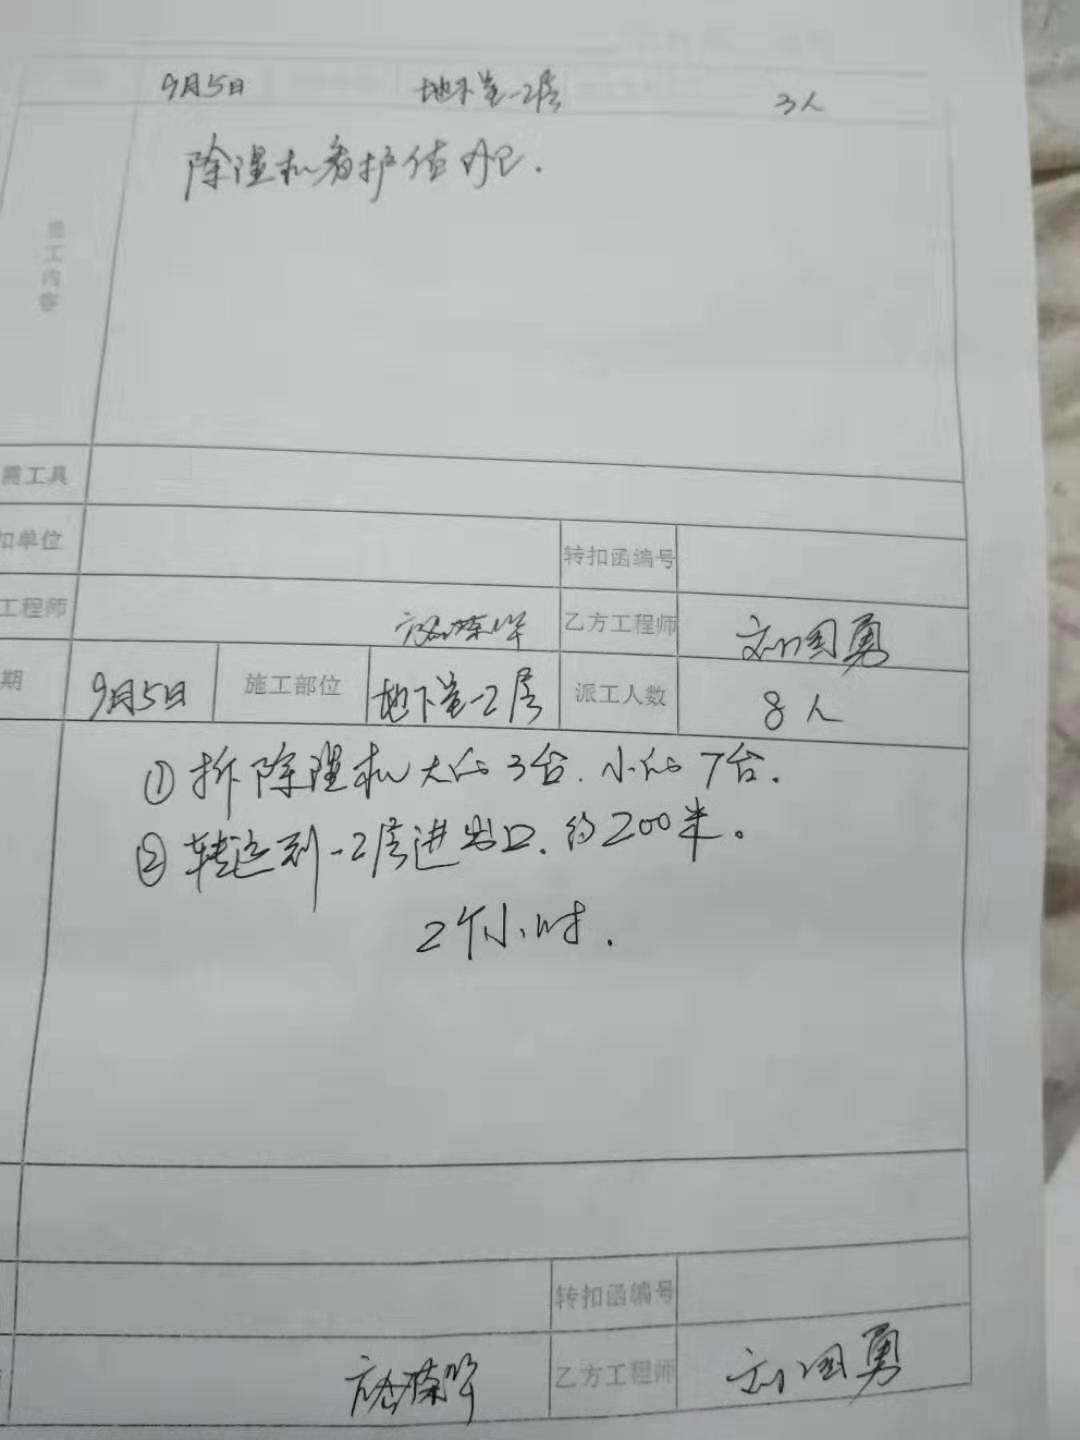 9月5日 地下室-2层 3人
施工内容
除湿机看护值班.
需工具
扣单位 转扣函编号
工程师 乙方工程师 刘国勇
期 9月5日 施工部位 地下室-2层 派工人数 8人
①拆除湿机大的3台.小的7台.
②转运到-2层进出口.约200米。
2个小时.
转扣函编号
乙方工程师 刘国勇